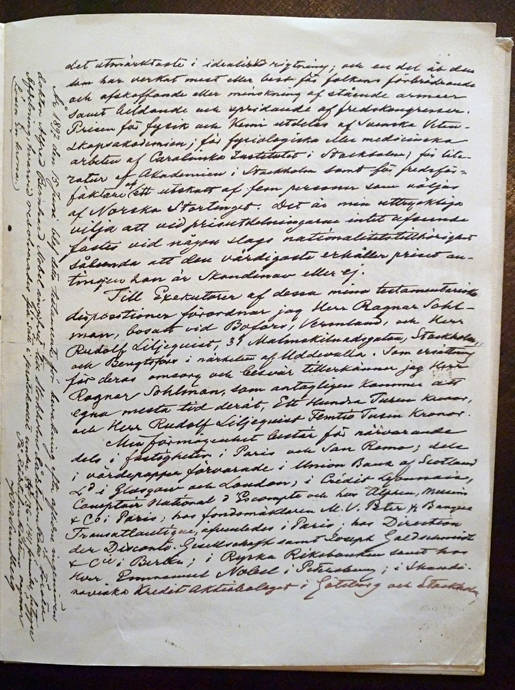 det utmärktaste i idealisk rigtning; och en del åt den
som har verkat mest eller best för folkens förbrödrande
och afskaffande eller minskning af stående armeer
samt bildande och spridande af fredskongresser.
Prisen för fysik och kemi utdelas af Svenska Veten-
skapsakademien; för fysiologiska eller medicinska
arbeten af Carolinska Institutet i Stockholm; för lite-
ratur af Akademien i Stockholm samt för fredsför-
fäktare af ett utskott af fem personer som väljas
af Norska Stortinget. Det är min uttryckliga
vilja att vid prisutdelningarne intet afseende
fästes vid någon slags nationalitetstillhörighet
sålunda att den värdigaste erhåller priset an-
tingen han är Skandinav eller ej.
Till Exekutorer af dessa mina testamentariska
dispositioner förordnar jag Herr Ragnar Sohl-
man, bosatt vid Bofors, Vermland, och Herr
Rudolf Liljequist, 31 Malmskilnadsgatan, Stockholm,
och Bengtsfors i närheten af Uddevalla. Som ersättning
för deras omsorg och besvär tillerkänner jag Herr
Ragnar Sohlman, som antagligen kommer att
egna mesta tid deråt, Ett Hundra Tusen Kronor,
och Herr Rudolf Liljequist Femtio Tusen Kronor.
Min förmögenhet består för närvarande
dels i fastigheter i Paris och San Remo; dels
i värdepapper förvarade i Union Bank of Scotland
Ld i Glasgow och London; i Crédit Lyonnais,
Comptoir National d'Escompte och hos Alphen, Messin
& Co i Paris; hos fondsmäklaren M. V. Peter & Banque
Transatlantique, äfvenledes i Paris; hos Direction
der Disconto Gesellschaft samt Joseph Goldschmidt
& Cie i Berlin; i Ryska Riksbanken samt hos
Herr Emmanuel Nobel i Petersburg; i Skandi-
naviska Kredit Aktiebolaget i Göteborg och Stockholm
År 1897 den 5 testamente för bevakning efter aflidne ingeniören
Alfred Bernhard Nobel